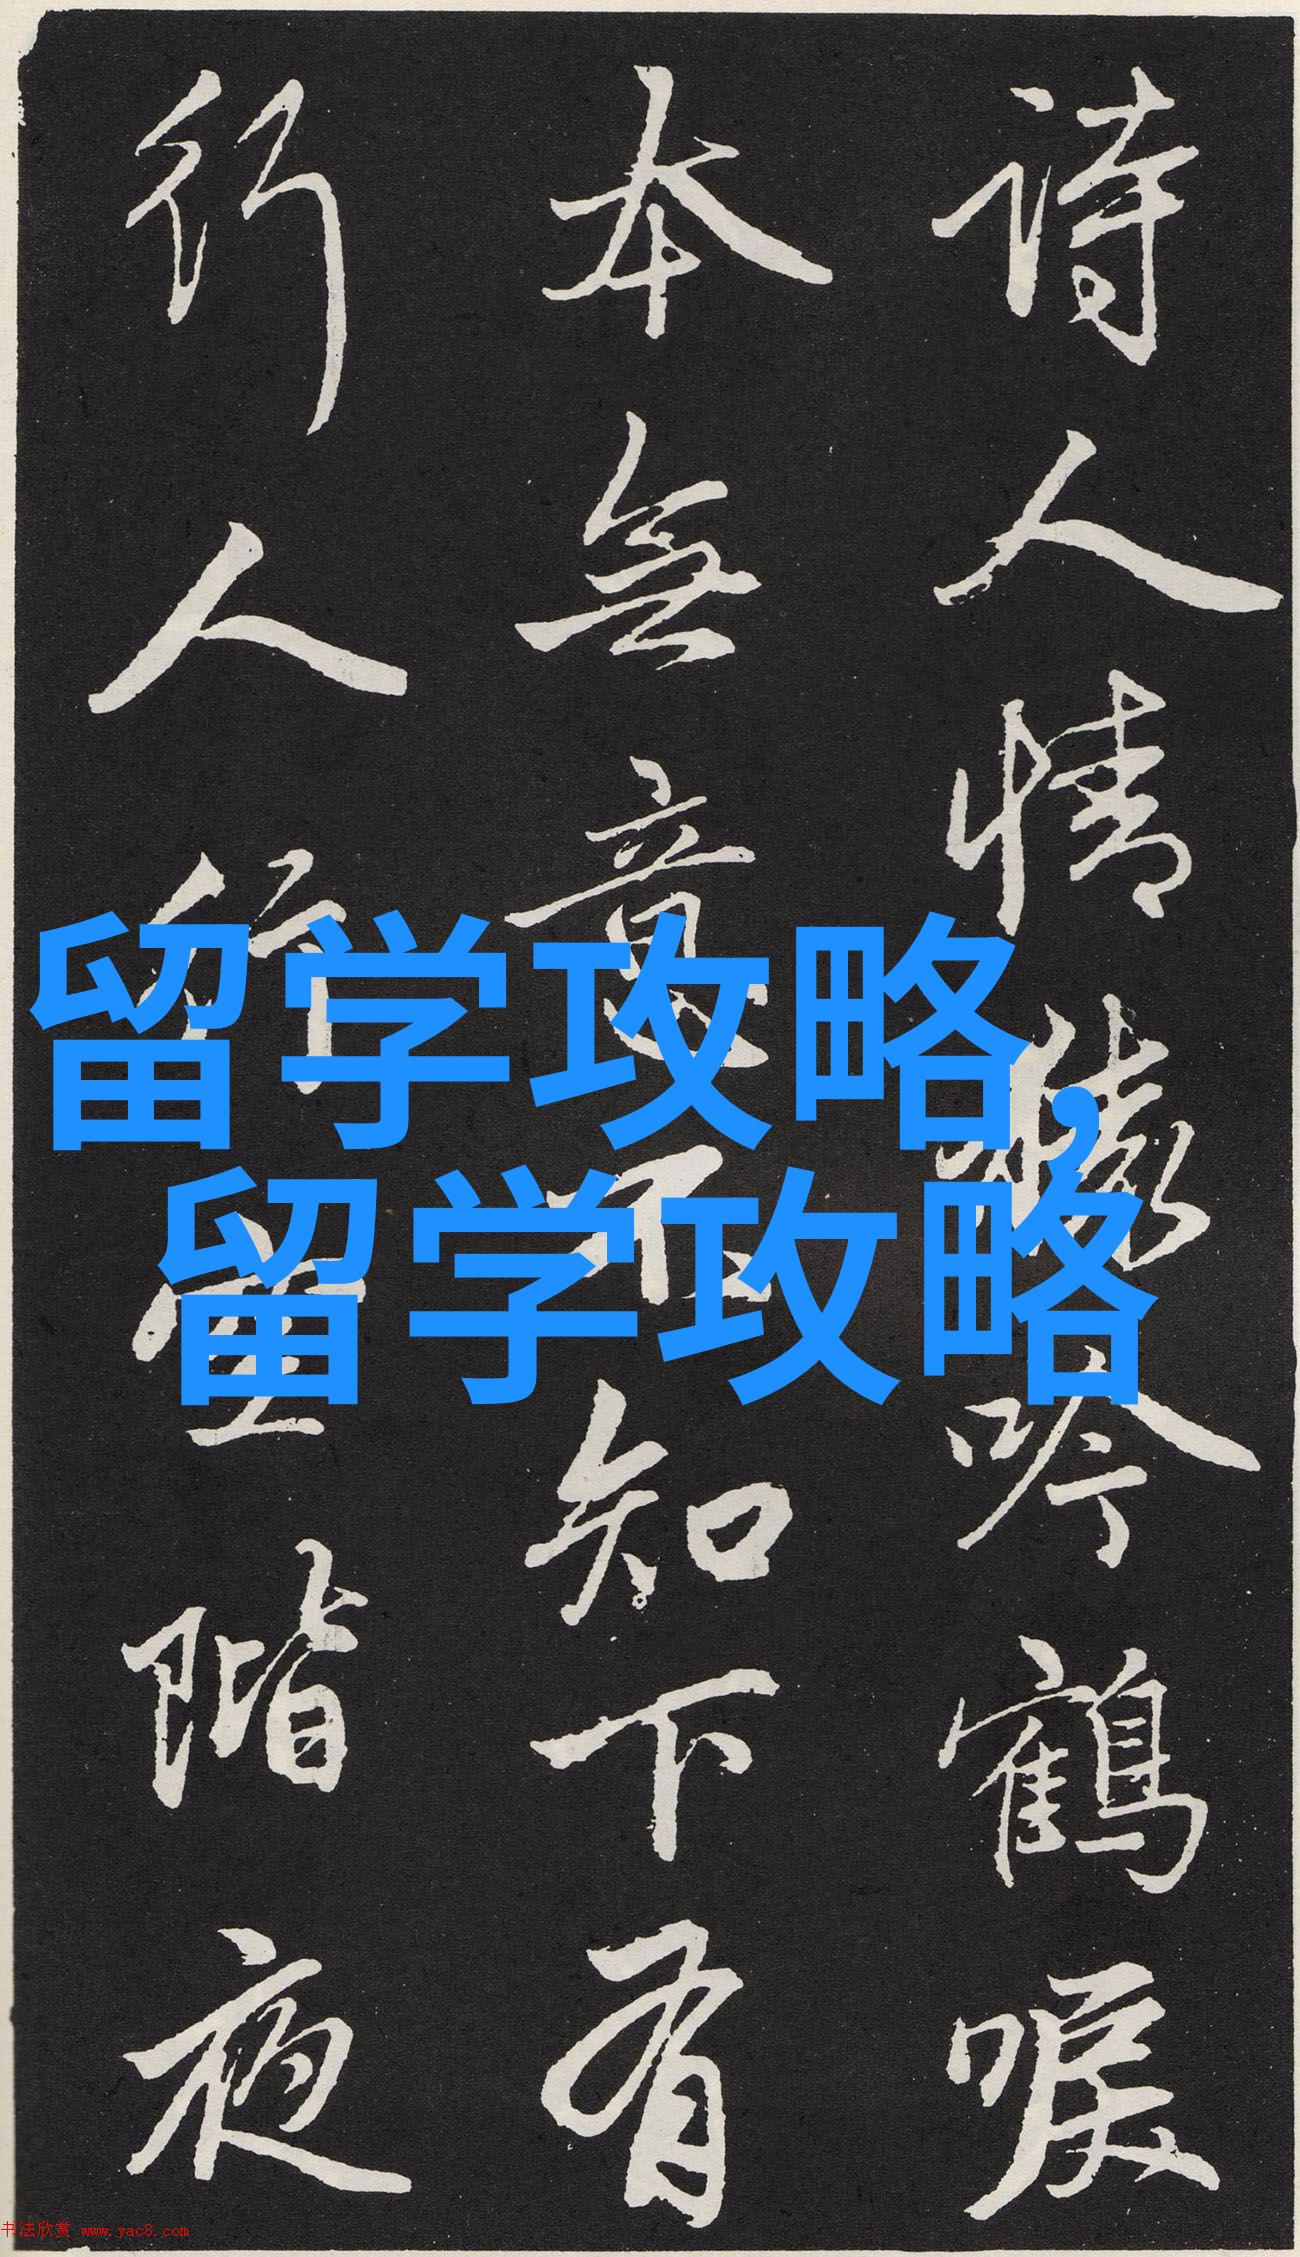 詩人情猿吟鶴唳
本無意不知下有
行人行空階夜
留学攻略,
留学攻略
书法欣赏 www.yac8.com